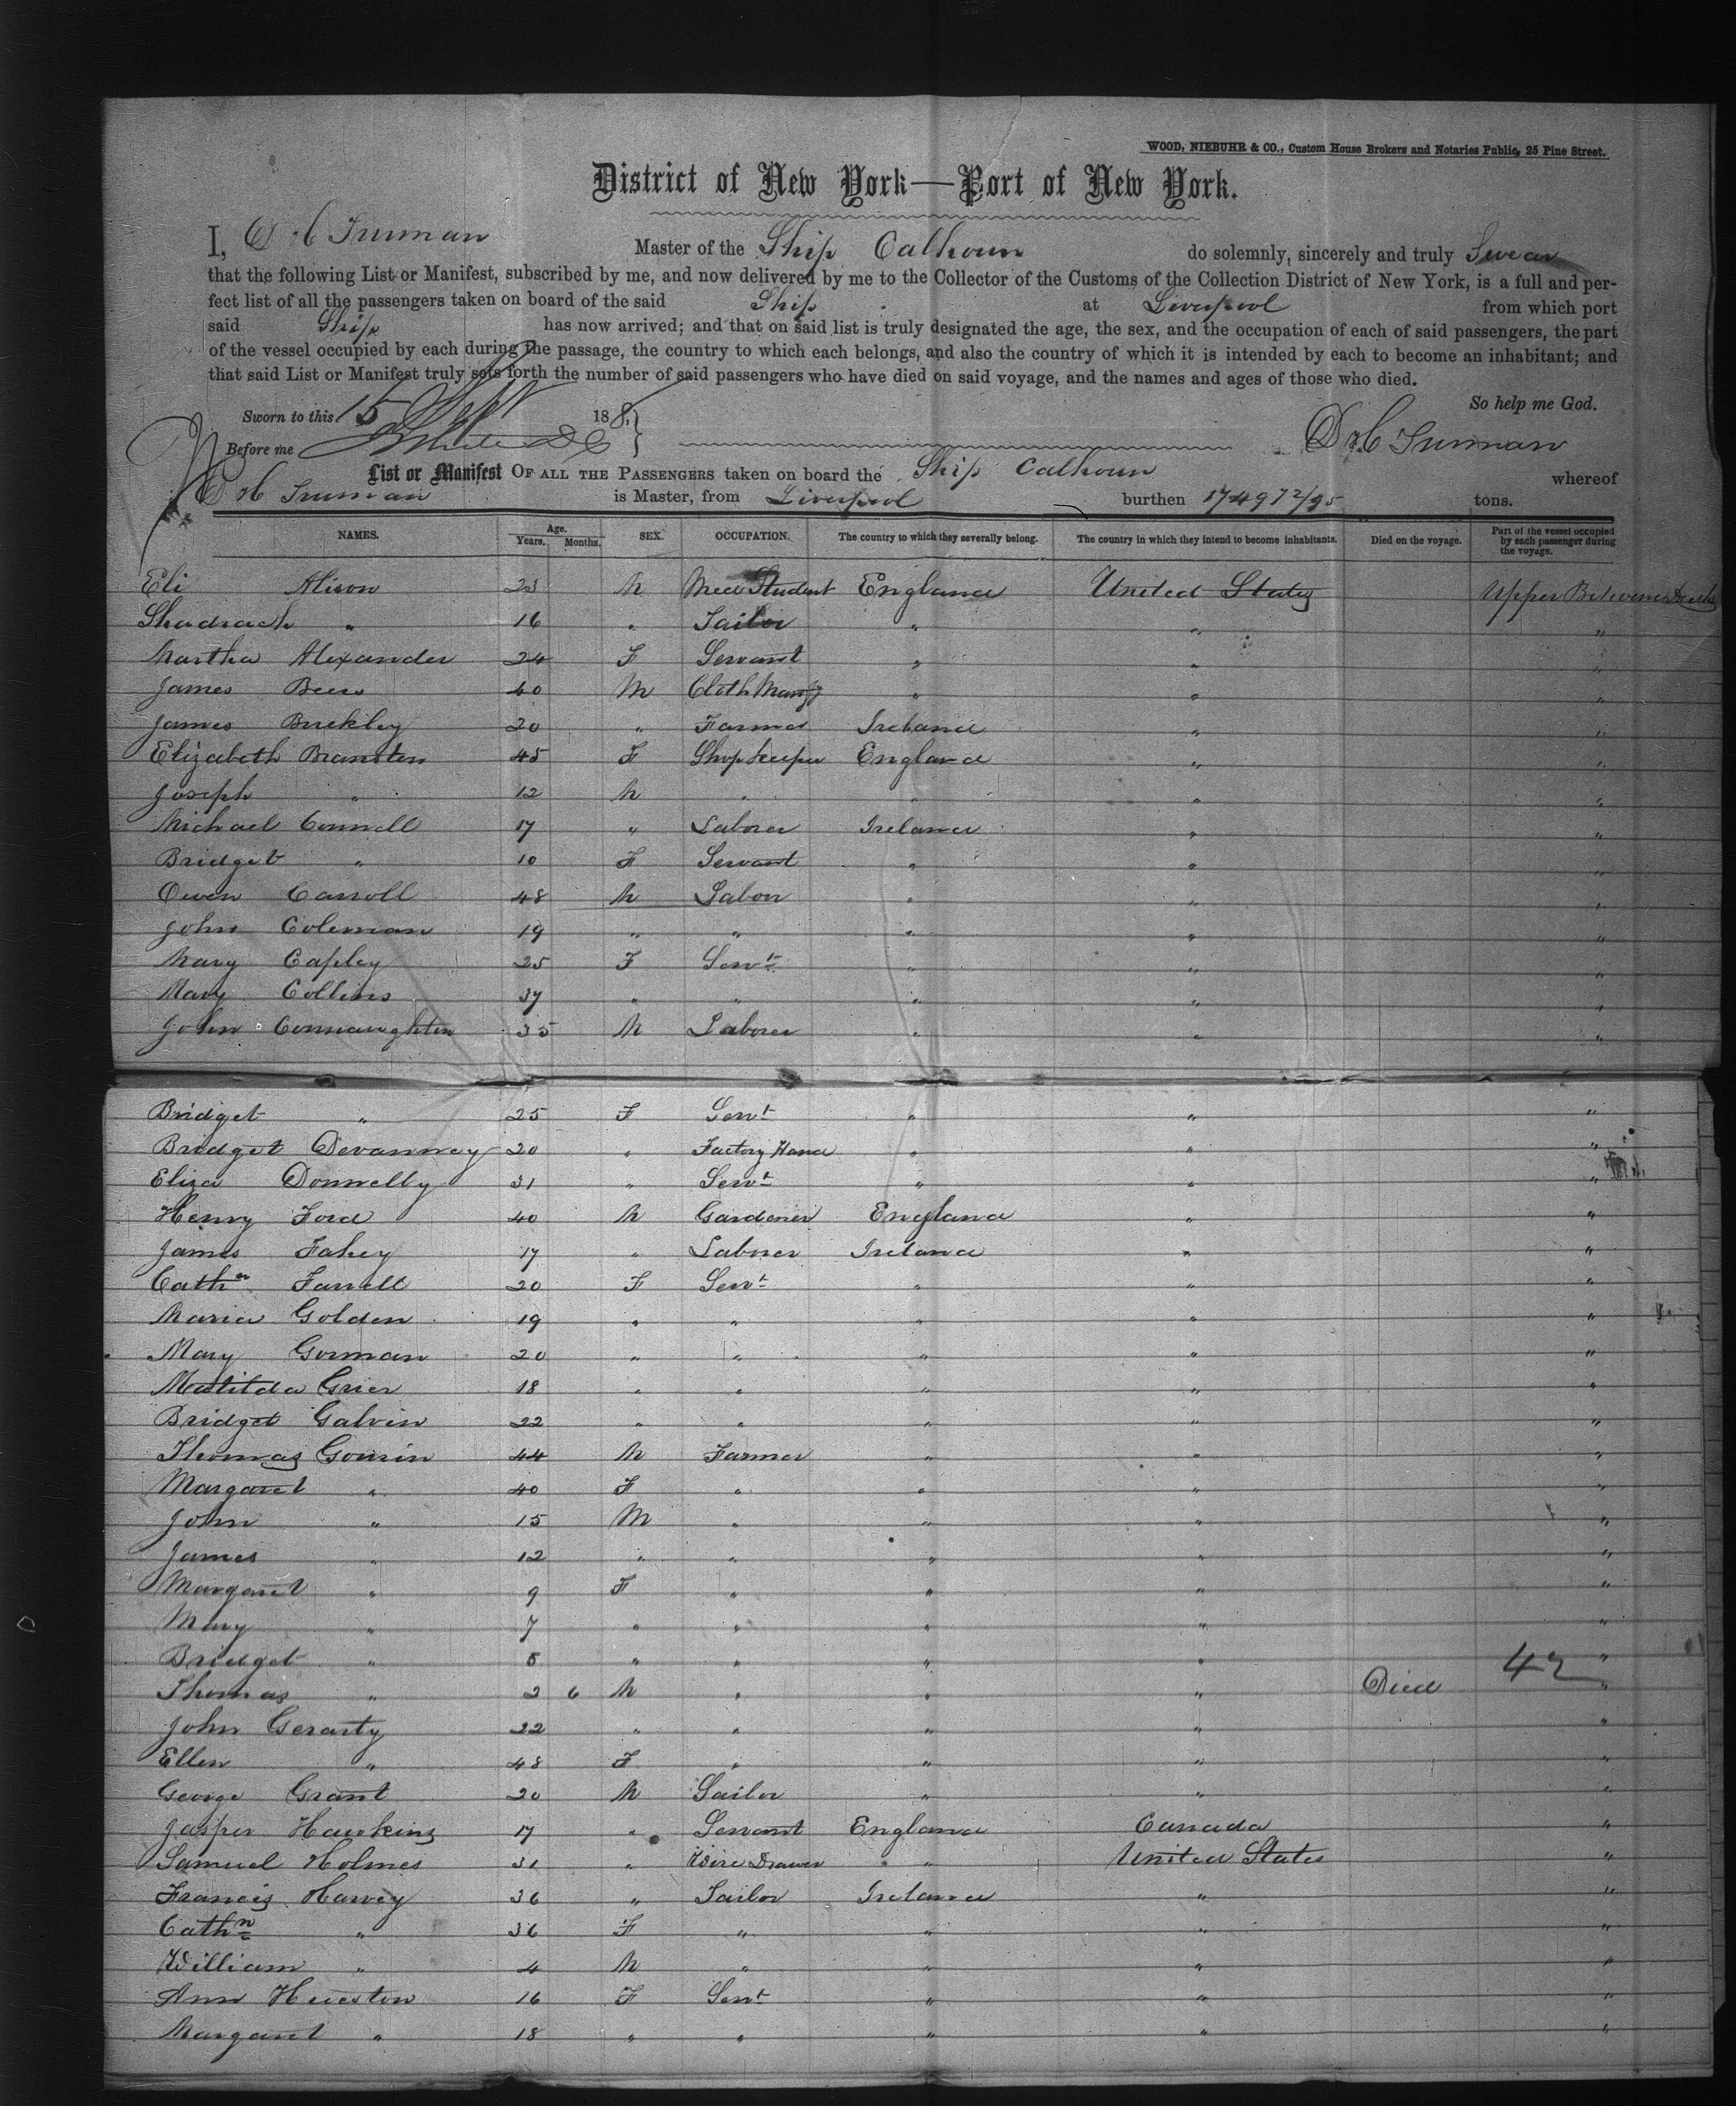 WOOD, NIEBUHR & CO., Custom House Brokers and Notaries Public, 25 Pine Street.
District of New York—Port of New York.
I, D H Truman Master of the Ship Calhoun do solemnly, sincerely and truly Swear
that the following List or Manifest, subscribed by me, and now delivered by me to the Collector of the Customs of the Collection District of New York, is a full and per-
fect list of all the passengers taken on board of the said Ship at Liverpool from which port
said Ship has now arrived; and that on said list is truly designated the age, the sex, and the occupation of each of said passengers, the part
of the vessel occupied by each during the passage, the country to which each belongs, and also the country of which it is intended by each to become an inhabitant; and
that said List or Manifest truly sets forth the number of said passengers who have died on said voyage, and the names and ages of those who died.
So help me God.
Sworn to this 15 Sept 188
Before me D H Truman
List or Manifest OF ALL THE PASSENGERS taken on board the Ship Calhoun whereof
D H Truman is Master, from Liverpool burthen 1749 72/95 tons.
NAMES. Age. Years. Months. SEX. OCCUPATION. The country to which they severally belong. The country in which they intend to become inhabitants. Died on the voyage. Part of the vessel occupied by each passenger during the voyage.
Eli Alison 23 M Med Student England United States Upper Between Decks
Shadrach " 16 " Tailor " " "
Martha Alexander 24 F Servant " " "
James Beers 40 M Cloth Manfg " " "
James Buckley 20 " Farmer Ireland " "
Elizabeth Branston 45 F Shop keeper England " "
Joseph " 12 M " " " "
Michael Connell 17 " Laborer Ireland " "
Bridget " 10 F Servant " " "
Owen Carroll 48 M Labor " " "
John Coleman 19 " " " " "
Mary Capley 25 F Servt " " "
Mary Collins 37 " " " " "
John Connaughton 35 M Laborer " " "
Bridget " 25 F Servt " " "
Bridget Devanney 20 " Factory Hand " " "
Eliza Donnelly 31 " Servt " " "
Henry Ford 40 M Gardener England " "
James Fahey 17 " Laborer Ireland " "
Cathn Farrell 20 F Servt " " "
Maria Golden 19 " " " " "
Mary Gorman 20 " " " " "
Matilda Grier 18 " " " " "
Bridget Galvin 22 " " " " "
Thomas Gourin 44 M Farmer " " "
Margaret " 40 F " " " "
John " 15 M " " " "
James " 12 " " " " "
Margaret " 9 F " " " "
Mary " 7 " " " " "
Bridget " 5 " " " " "
Thomas " 2 6 M " " " Died 42 "
John Gerarty 22 " " " " "
Ellen " 48 F " " " "
George Grant 20 M Sailor " " "
Jasper Hawkins 17 " Servant England Canada "
Samuel Holmes 31 " Wire Drawer " United States "
Francis Harvey 36 " Tailor Ireland " "
Cathn " 36 F " " " "
William " 4 M " " " "
Ann Hueston 16 F Servt " " "
Margaret " 18 " " " " "